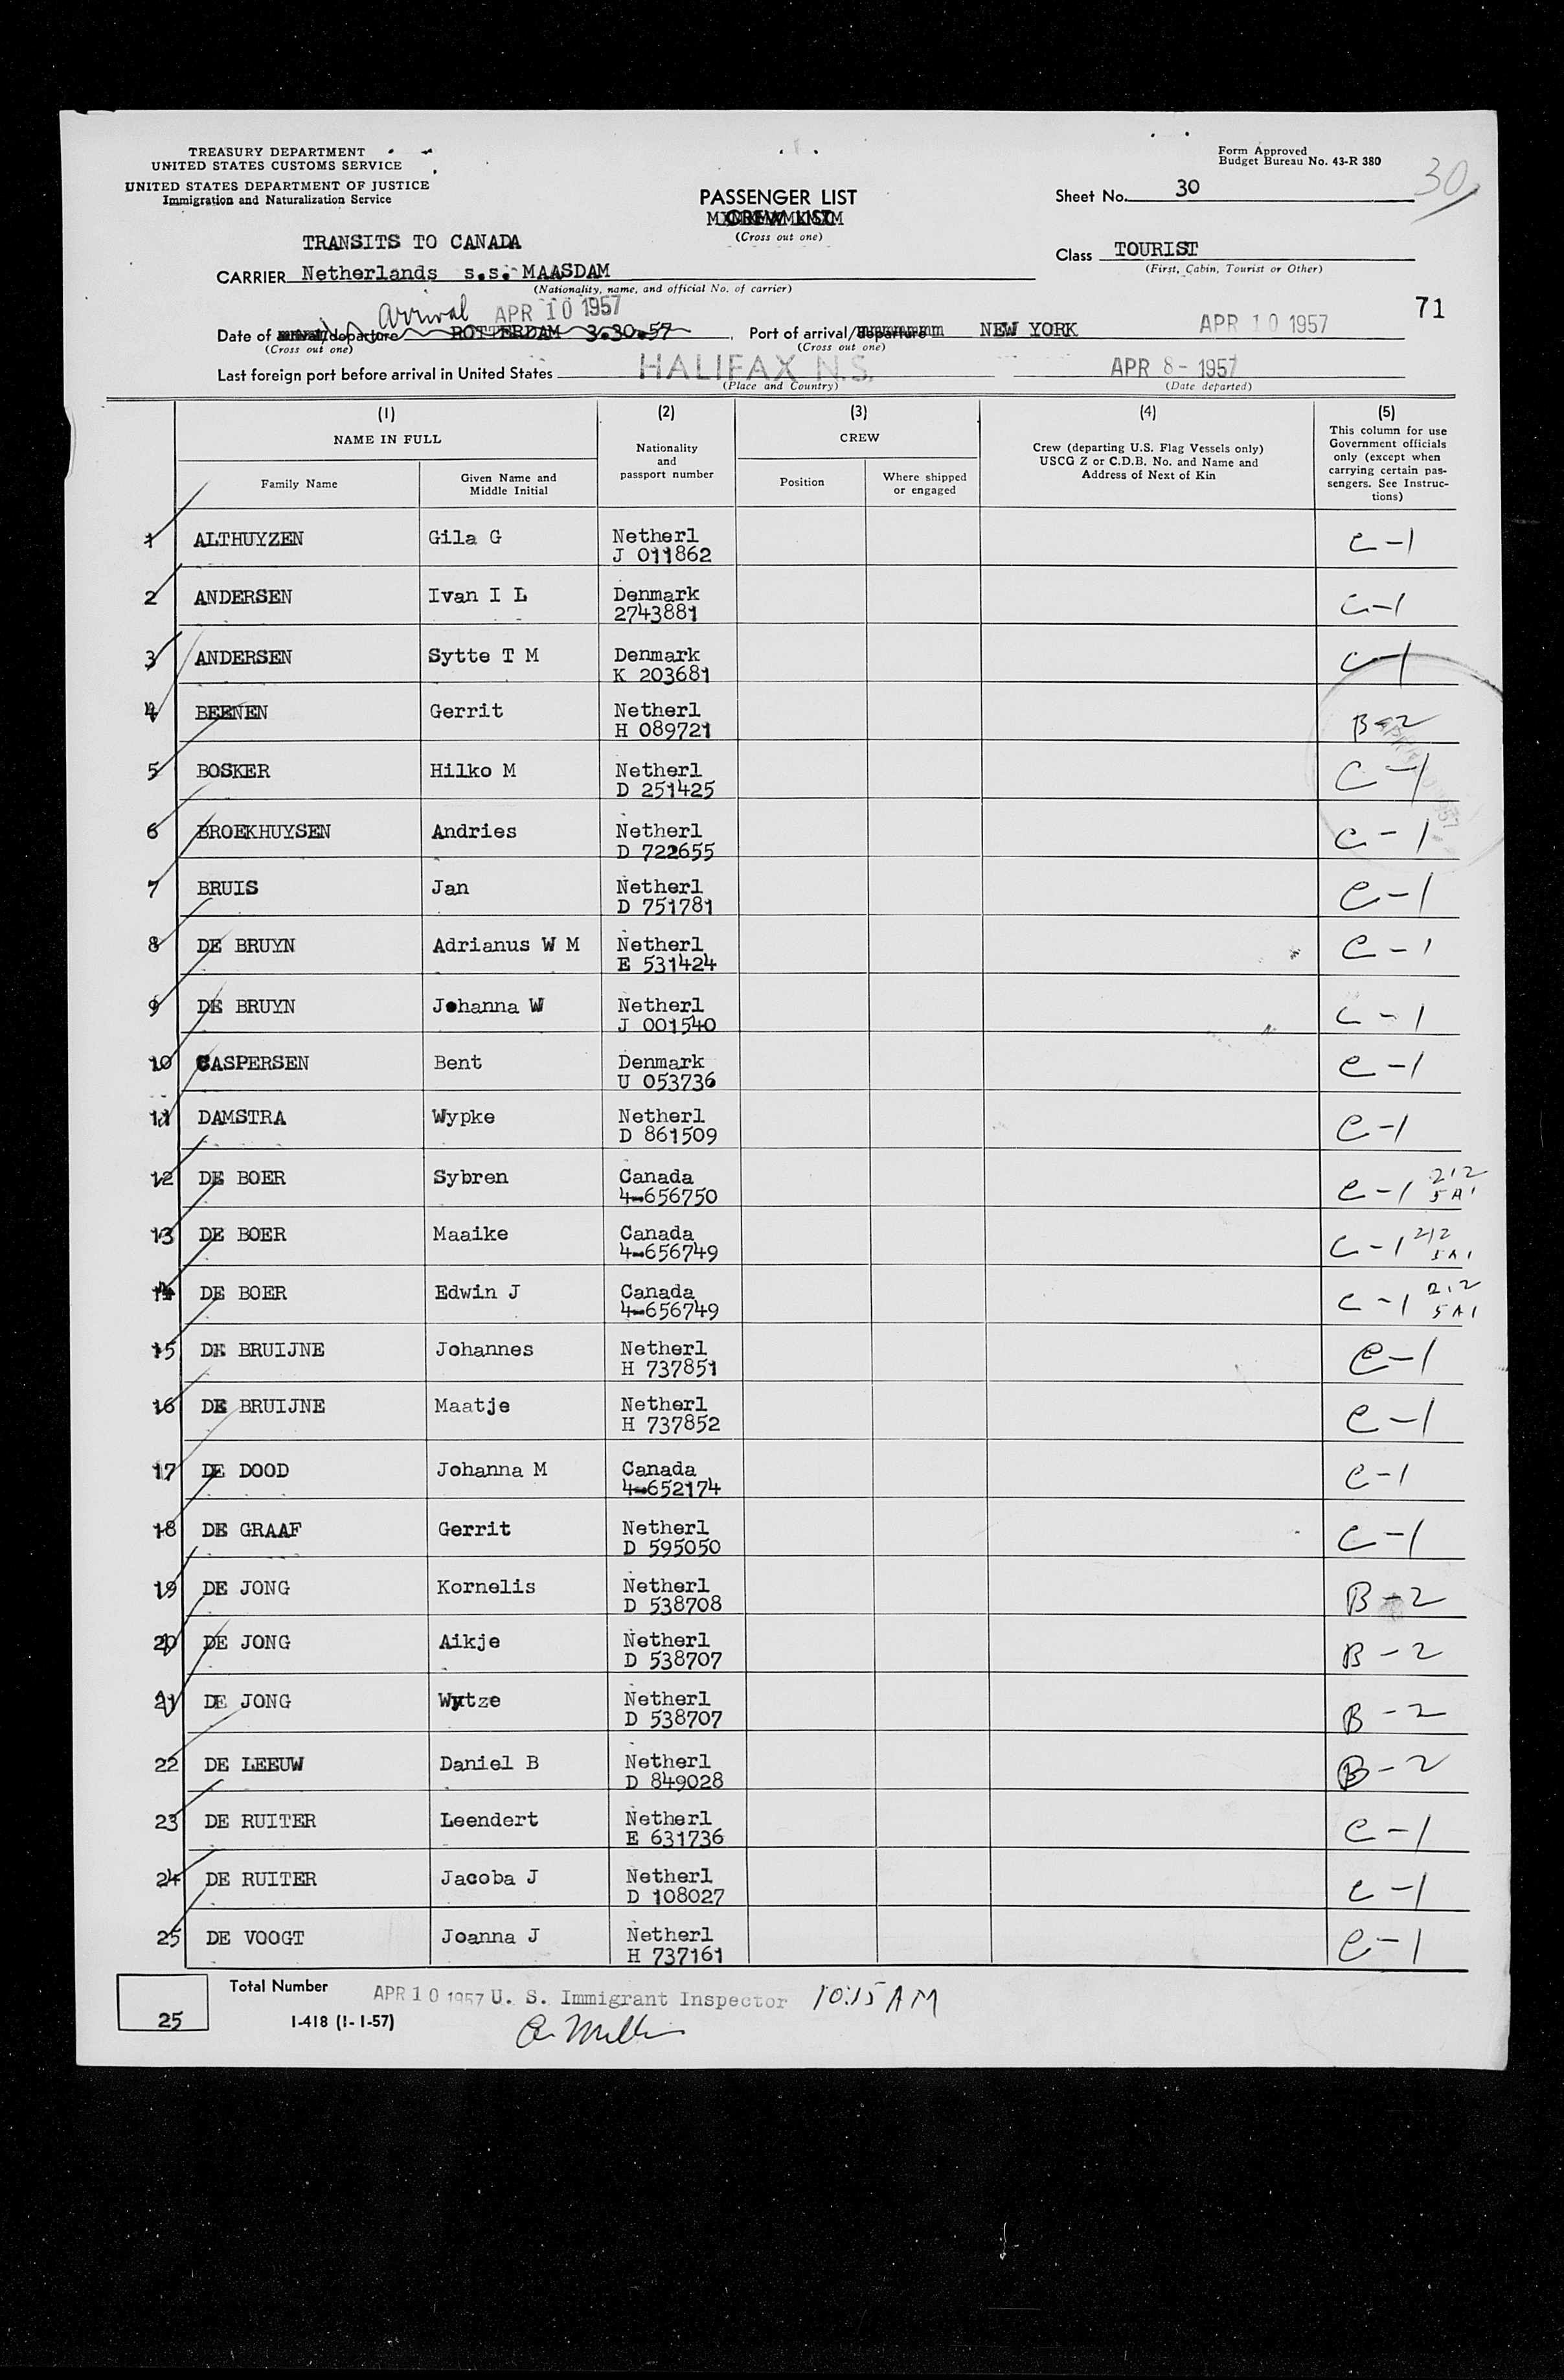 TREASURY DEPARTMENT
UNITED STATES CUSTOMS SERVICE
UNITED STATES DEPARTMENT OF JUSTICE
Immigration and Naturalization Service
Form Approved
Budget Bureau No. 43-R 380
PASSENGER LIST
CREW LIST
(Cross out one)
Sheet No. 30
30
TRANSITS TO CANADA
CARRIER Netherlands s.s. MAASDAM
(Nationality, name, and official No. of carrier)
Class TOURIST
(First, Cabin, Tourist or Other)
71
arrival APR 10 1957
Date of arrival/departure ROTTERDAM 3.30.57 Port of arrival/departure NEW YORK APR 10 1957
(Cross out one) (Cross out one)
Last foreign port before arrival in United States HALIFAX N.S. APR 8 - 1957
(Place and Country) (Date departed)
(1) (2) (3) (4) (5)
NAME IN FULL
Family Name
Given Name and Middle Initial
Nationality and passport number
CREW
Position
Where shipped or engaged
Crew (departing U.S. Flag Vessels only)
USCG Z or C.D.B. No. and Name and
Address of Next of Kin
This column for use
Government officials
only (except when
carrying certain pas-
sengers. See Instruc-
tions)
1 ALTHUYZEN Gila G Netherl J 011862 C-1
2 ANDERSEN Ivan I L Denmark 2743881 C-1
3 ANDERSEN Sytte T M Denmark K 203681 C-1
4 BEENEN Gerrit Netherl H 089721 B-2
5 BOSKER Hilko M Netherl D 251425 C-1
6 BROEKHUYSEN Andries Netherl D 722655 C-1
7 BRUIS Jan Netherl D 751781 C-1
8 DE BRUYN Adrianus W M Netherl E 531424 C-1
9 DE BRUYN Johanna W Netherl J 001540 C-1
10 CASPERSEN Bent Denmark U 053736 C-1
11 DAMSTRA Wypke Netherl D 861509 C-1
12 DE BOER Sybren Canada 4-656750 C-1 212 5A1
13 DE BOER Maaike Canada 4-656749 C-1 212 5A1
14 DE BOER Edwin J Canada 4-656749 C-1 212 5A1
15 DE BRUIJNE Johannes Netherl H 737851 C-1
16 DE BRUIJNE Maatje Netherl H 737852 C-1
17 DE DOOD Johanna M Canada 4-652174 C-1
18 DE GRAAF Gerrit Netherl D 595050 C-1
19 DE JONG Kornelis Netherl D 538708 B-2
20 DE JONG Aikje Netherl D 538707 B-2
21 DE JONG Wytze Netherl D 538707 B-2
22 DE LEEUW Daniel B Netherl D 849028 B-2
23 DE RUITER Leendert Netherl E 631736 C-1
24 DE RUITER Jacoba J Netherl D 108027 C-1
25 DE VOOGT Joanna J Netherl H 737161 C-1
Total Number
25
APR 10 1957 U. S. Immigrant Inspector 10:15 AM
I-418 (1-1-57)